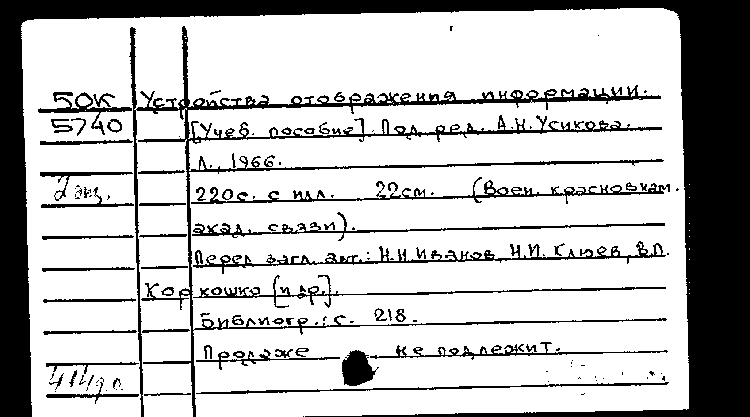 50К Устройства отображения информации.
5740 [Учеб. пособие]. Под ред. А.Н. Усикова.
Л., 1966.
2 экз. 220с. с илл. 22см. (Воен. краснознам.
акад. связи).
Перед загл. авт.: Н.Н. Иванов, Н.И. Клюев, В.П.
Коркошко [и др.].
Библиогр.: с. 218.
Продаже не подлежит.